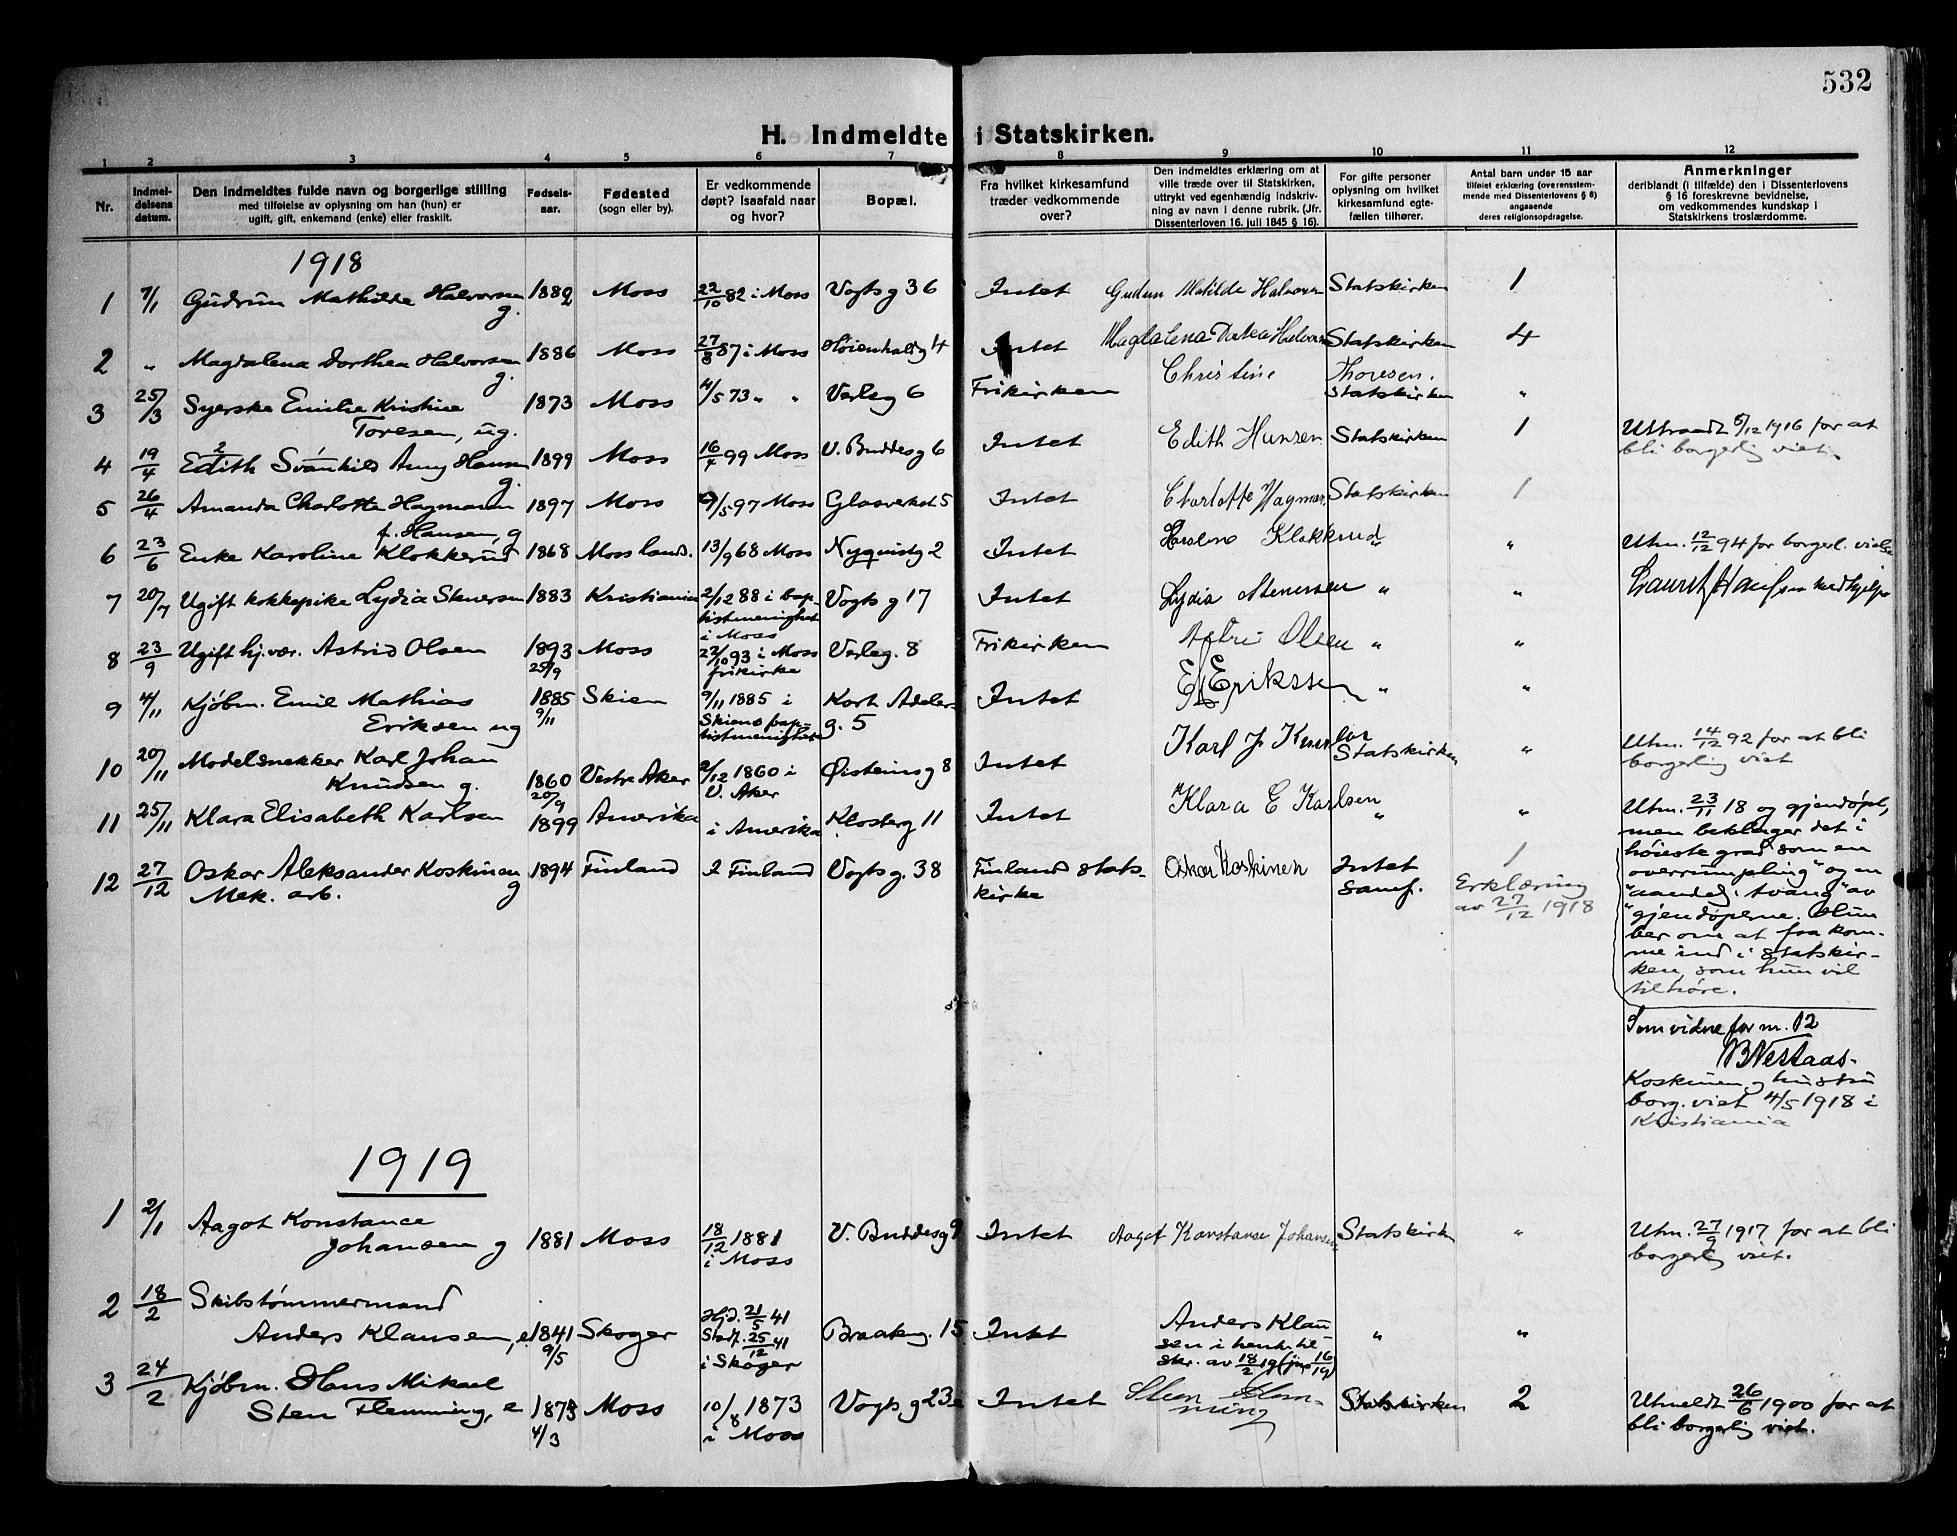 532
H. Indmeldte i Statskirken.
1 2 3 4 5 6 7 8 9 10 11 12
Nr.
Indmel-
delsens
datum.
Den indmeldtes fulde navn og borgerlige stilling
med tilføielse av oplysning om han (hun) er
ugift, gift, enkemand (enke) eller fraskilt.
Fødsels-
aar.
Fødested
(sogn eller by).
Er vedkommende
døpt? Isaafald naar
og hvor?
Bopæl.
Fra hvilket kirkesamfund
træder vedkommende
over?
Den indmeldtes erklæring om at
ville træde over til Statskirken,
uttrykt ved egenhændig indskriv-
ning av navn i denne rubrik. (Jfr.
Dissenterloven 16. juli 1845 § 16).
For gifte personer
oplysning om hvilket
kirkesamfund egte-
fællen tilhører.
Antal barn under 15 aar
tilføiet erklæring (overensstem-
mende med Dissenterlovens § 8)
angaaende
deres religionsopdragelse.
Anmerkninger
deriblandt (i tilfælde) den i Dissenterlovens
§ 16 foreskrevne bevidnelse,
om vedkommendes kundskap i
Statskirkens troslærdomme.
1918
1 7/1 Gudrun Mathilde Halvorsen g. 1882 Moss 22/10 82 i Moss Vogtsg 36 Intet Gudrun Matilde Halvorsen Statskirken 1
2 " Magdalena Dorthea Halvorsen g. 1886 Moss 27/8 87 i Moss Høienhaldg 4 Intet Magdalena Dortea Halvorsen Statskirken 4
3 25/3 Syerske Emilie Kristine
Toresen, ug. 1873 Moss 4/5 73 " " Verleg 6 Frikirken Christine Thoresen. Statskirken "
4 19/4 Edith Svanhild Amy Hansen g. 1899 Moss 16/4 99 Moss V. Buddesg 6 Intet Edith Hansen Statskirken 1 Uttraadt 6/12 1916 for at
bli borgerlig viet.
5 26/4 Amanda Charlotte Hagmann
f. Hansen, g 1897 Moss 9/5 97 Moss Glasverket 5 Intet Charlotte Hagman Statskirken 1
6 23/6 Enke Karoline Klokkerud 1868 Moss lands. 13/9 68 Moss Nyquistg 2 Intet Karoline Klokkrud " " Utm. 12/12 94 for borgerl. vielse
7 20/7 Ugift kokkepike Lydia Stenersen 1883 Kristiania 2/12 88 i bap-
tistmenighet
i Moss Vogts g 17 Intet Lydia Stenersen " " Lauritz Hansen medhjelper
8 23/9 Ugift hj.vær. Astrid Olsen 1893
25/9 Moss 22/10 93 i Moss
frikirke Verleg. 8 Frikirken Astri Olsen " "
9 4/11 Kjøbm. Emil Mathias
Eriksen ug 1885
9/11 Skien 9/11 1885 i
Skiens bap-
tistmenighet Kort Adelers
g. 5 Intet E M Eriksen " "
10 20/11 Modelsnekker Karl Johan
Knudsen g. 1860
20/9 Vestre Aker 2/12 1860 i
V. Aker Øisteinsg 8 Intet Karl J Knudsen Statskirken " Utm. 14/12 92 for at bli
borgerlig viet
11 25/11 Klara Elisabeth Karlsen 1899 Amerika i Amerika Klosterg 11 Intet Klara E Karlsen " " Utm. 23/11 18 og gjendøpt,
men beklager det i
høieste grad som en
"overrumpling" og en
"aandelig tvang" av
"gjendøperne. Hun
ber om at faa kom-
me ind i statskir-
ken, som hun vil
tilhøre.
12 27/12 Oskar Aleksander Koskinen g
Mek. arb. 1894 Finland I Finland Vogtsg. 38 Finlands stats-
kirke Oskar Koskinen Intet
samf. 1
Erklæring
av 27/12 1918
Som vidne for nr. 12
B Nestaas.
Koskinen og hustru
borg. viet 4/5 1918 i
Kristiania
1919
1 2/1 Aagot Konstance
Johansen g 1881 Moss 18/12 1881
i Moss V. Buddesg 9 Intet Aagot Konstanse Johansen Statskirken " Utm. 27/9 1917 for at bli
borgerlig viet.
2 18/2 Skibstømmermand
Anders Klausen, e. 1841
9/5 Skoger Hjd. 21/5 41
Stadf. 25/12 41
i Skoger Braateng. 15 Intet Anders Klau-
sen i henh. til
skr. av 18/2 19 " "
3 24/2 Kjøbm. Hans Mikael
Sten Flemming, e 1873
4/3 Moss 10/8 1873
i Moss Vogtsg 23 Intet Steen Flem-
ming Statskirken 2 Utmeldt 26/6 1900 for at
bli borgerlig viet.